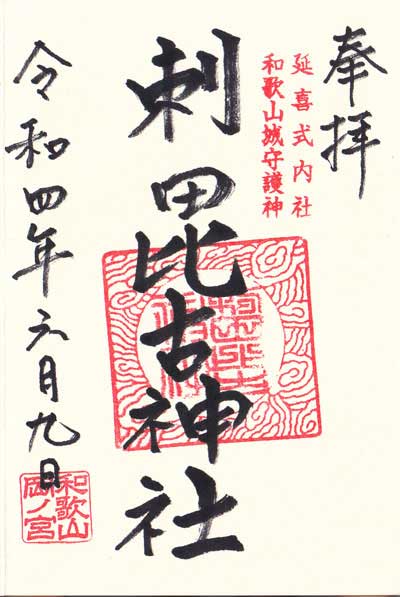 奉拝
延喜式内社
和歌山城守護神
刺田比古神社
令和四年六月九日
和歌山
岡ノ宮